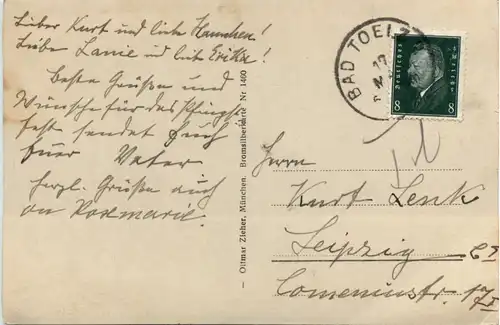 Lieber Kurt und liebe Hannchen!
Liebe Lanie und liebe Erika!
Beste Grüße und
Wünsche für das Pfingst-
fest sendet Euch
Euer Vater
Herzl. Grüße auch
an Rosmarie.
— Ottmar Zieher, München. Bromsilberkarte Nr. 1400
BAD TOELZ
Deutsches Reich
8 8
Herrn
Kurt Lenk
Leipzig
Comeniusstr.